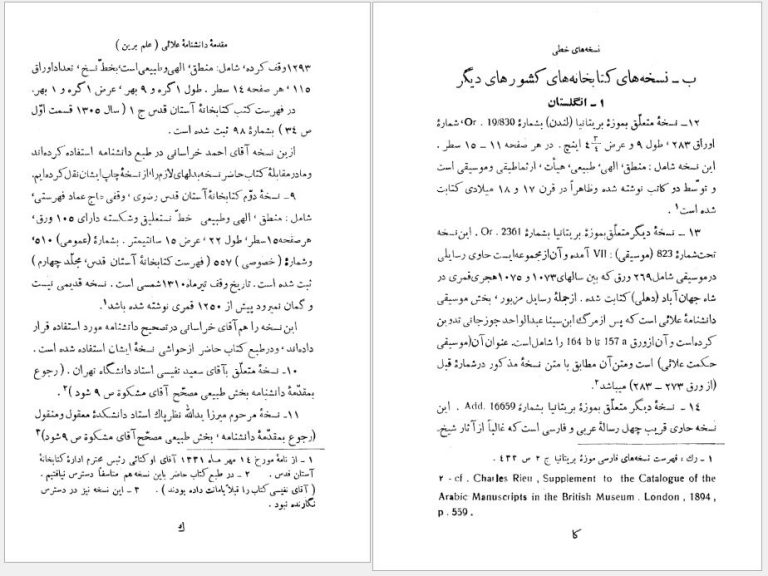 مقدمهٔ دانشنامهٔ علائی ( علم برین )
۱۲۹۳ وقف کرده، شامل: منطق، الهی وطبیعی است، بخطّ نسخ، تعداد اوراق
۱۱۵، هر صفحه ۱۴ سطر . طول ۱ گره و ۹ بهر، عرض ۱ گره و ۱ بهر.
در فهرست کتب کتابخانهٔ آستان قدس ج ۱ ( سال ۱۳۰۵ قسمت اوّل
ص ۳۴ ) بشمارهٔ ۹۸ ثبت شده است .
ازین نسخه آقای احمد خراسانی در طبع دانشنامه استفاده کرده‌اند
و ما در مقابلهٔ کتاب حاضر نسخه بدلهای لازم را از نسخهٔ چاپ ایشان نقل کرده‌ایم.
۹ ـ نسخهٔ دوّم کتابخانهٔ آستان قدس رضوی، وقفی حاج عماد فهرستی،
شامل : منطق، الهی وطبیعی خطّ نستعلیق وشکسته دارای ۱۰۵ ورق،
هرصفحه ۱۵سطر، طول ۲۲، عرض ۱۵ سانتیمتر . بشمارهٔ (عمومی) ۵۱۰
وشمارهٔ ( خصوصی ) ۵۵۷ ( فهرست کتابخانهٔ آستان قدس، مجلّد چهارم )
ثبت شده است . تاریخ وقف تیرماه ۱۳۱۰شمسی است . نسخه قدیمی نیست
و گمان نمیرود پیش از ۱۲۵۰ قمری نوشته شده باشد۱.
این نسخه را هم آقای خراسانی درتصحیح دانشنامه مورد استفاده قرار
داده‌اند، ودرطبع کتاب حاضر ازحواشی نسخهٔ ایشان استفاده شده است .
۱۰ـ نسخهٔ متعلّق بآقای سعید نفیسی استاد دانشگاه تهران . ( رجوع
بمقدّمهٔ دانشنامه بخش طبیعی مصحّح آقای مشکوة ص ۹ شود )۲.
۱۱ ـ نسخهٔ مرحوم میرزا یدالله نظرپاک استاد دانشکدهٔ معقول ومنقول
(رجوع بمقدّمهٔ دانشنامه، بخش طبیعی مصحّح آقای مشکوة ص ۹شود)۳
۱ ـ از نامهٔ مورخ ۱۴ مهر ماه ۱۳۳۱ آقای اوکتائی رئیس محترم ادارهٔ کتابخانهٔ
آستان قدس . ۲ ـ در طبع کتاب حاضر باین نسخه هم متأسفاً دسترس نیافتیم .
( آقای نفیسی کتاب را قبلاً بامانت داده بودند ) . ۳ ـ این نسخه نیز در دسترس
نگارنده نبود .
ک
نسخه‌های خطی
ب ـ نسخه‌های کتابخانه‌های کشورهای دیگر
۱ ـ انگلستان
۱۲ ـ نسخهٔ متعلّق بموزهٔ بریتانیا (لندن) بشمارهٔ Or . 19/830، شمارهٔ
اوراق ۲۸۳، طول ۹ و عرض ۴ ۳/۴ اینچ . در هر صفحه ۱۱ ـ ۱۵ سطر .
این نسخه شامل : منطق، الهی، طبیعی، هیأت، ارثماطیقی وموسیقی است
و توسّط دو کاتب نوشته شده وظاهراً در قرن ۱۷ و ۱۸ میلادی کتابت
شده است۱.
۱۳ ـ نسخهٔ دیگر متعلّق بموزهٔ بریتانیا بشمارهٔ Or . 2361 . این نسخه
تحت شمارهٔ 823 (موسیقی) : VII آمده و آن از مجموعه‌ایست حاوی رسایلی
در موسیقی شامل ۲۶۹ ورق که بین سالهای ۱۰۷۳ و ۱۰۷۵ هجری قمری در
شاه جهان آباد (دهلی) کتابت شده . ازجملهٔ رسایل مزبور، بخش موسیقی
دانشنامهٔ علائی است که پس از مرگ ابن سینا عبدالواحد جوزجانی تدوین
کرده است و آن از ورق 157 a تا 164 b را شامل است، عنوان آن (موسیقی
حکمت علائی) است ومتن آن مطابق با متن نسخهٔ مذکور در شمارهٔ قبل
(از ورق ۲۷۳ ـ ۲۸۳) میباشد۲.
۱۴ ـ نسخهٔ دیگر متعلق بموزهٔ بریتانیا بشمارهٔ Add. 16659 . این
نسخه حاوی قریب چهل رسالهٔ عربی و فارسی است که غالباً از آثار شیخ.
۱ ـ رك، فهرست نسخه‌های فارسی موزهٔ بریتانیا ج ۲ ص ۴۳۳ .
۲ - cf . Charles Rieu , Supplement to the Catalogue of the
Arabic Manuscripts in the British Museum . London , 1894 ,
p . 559 .
کا